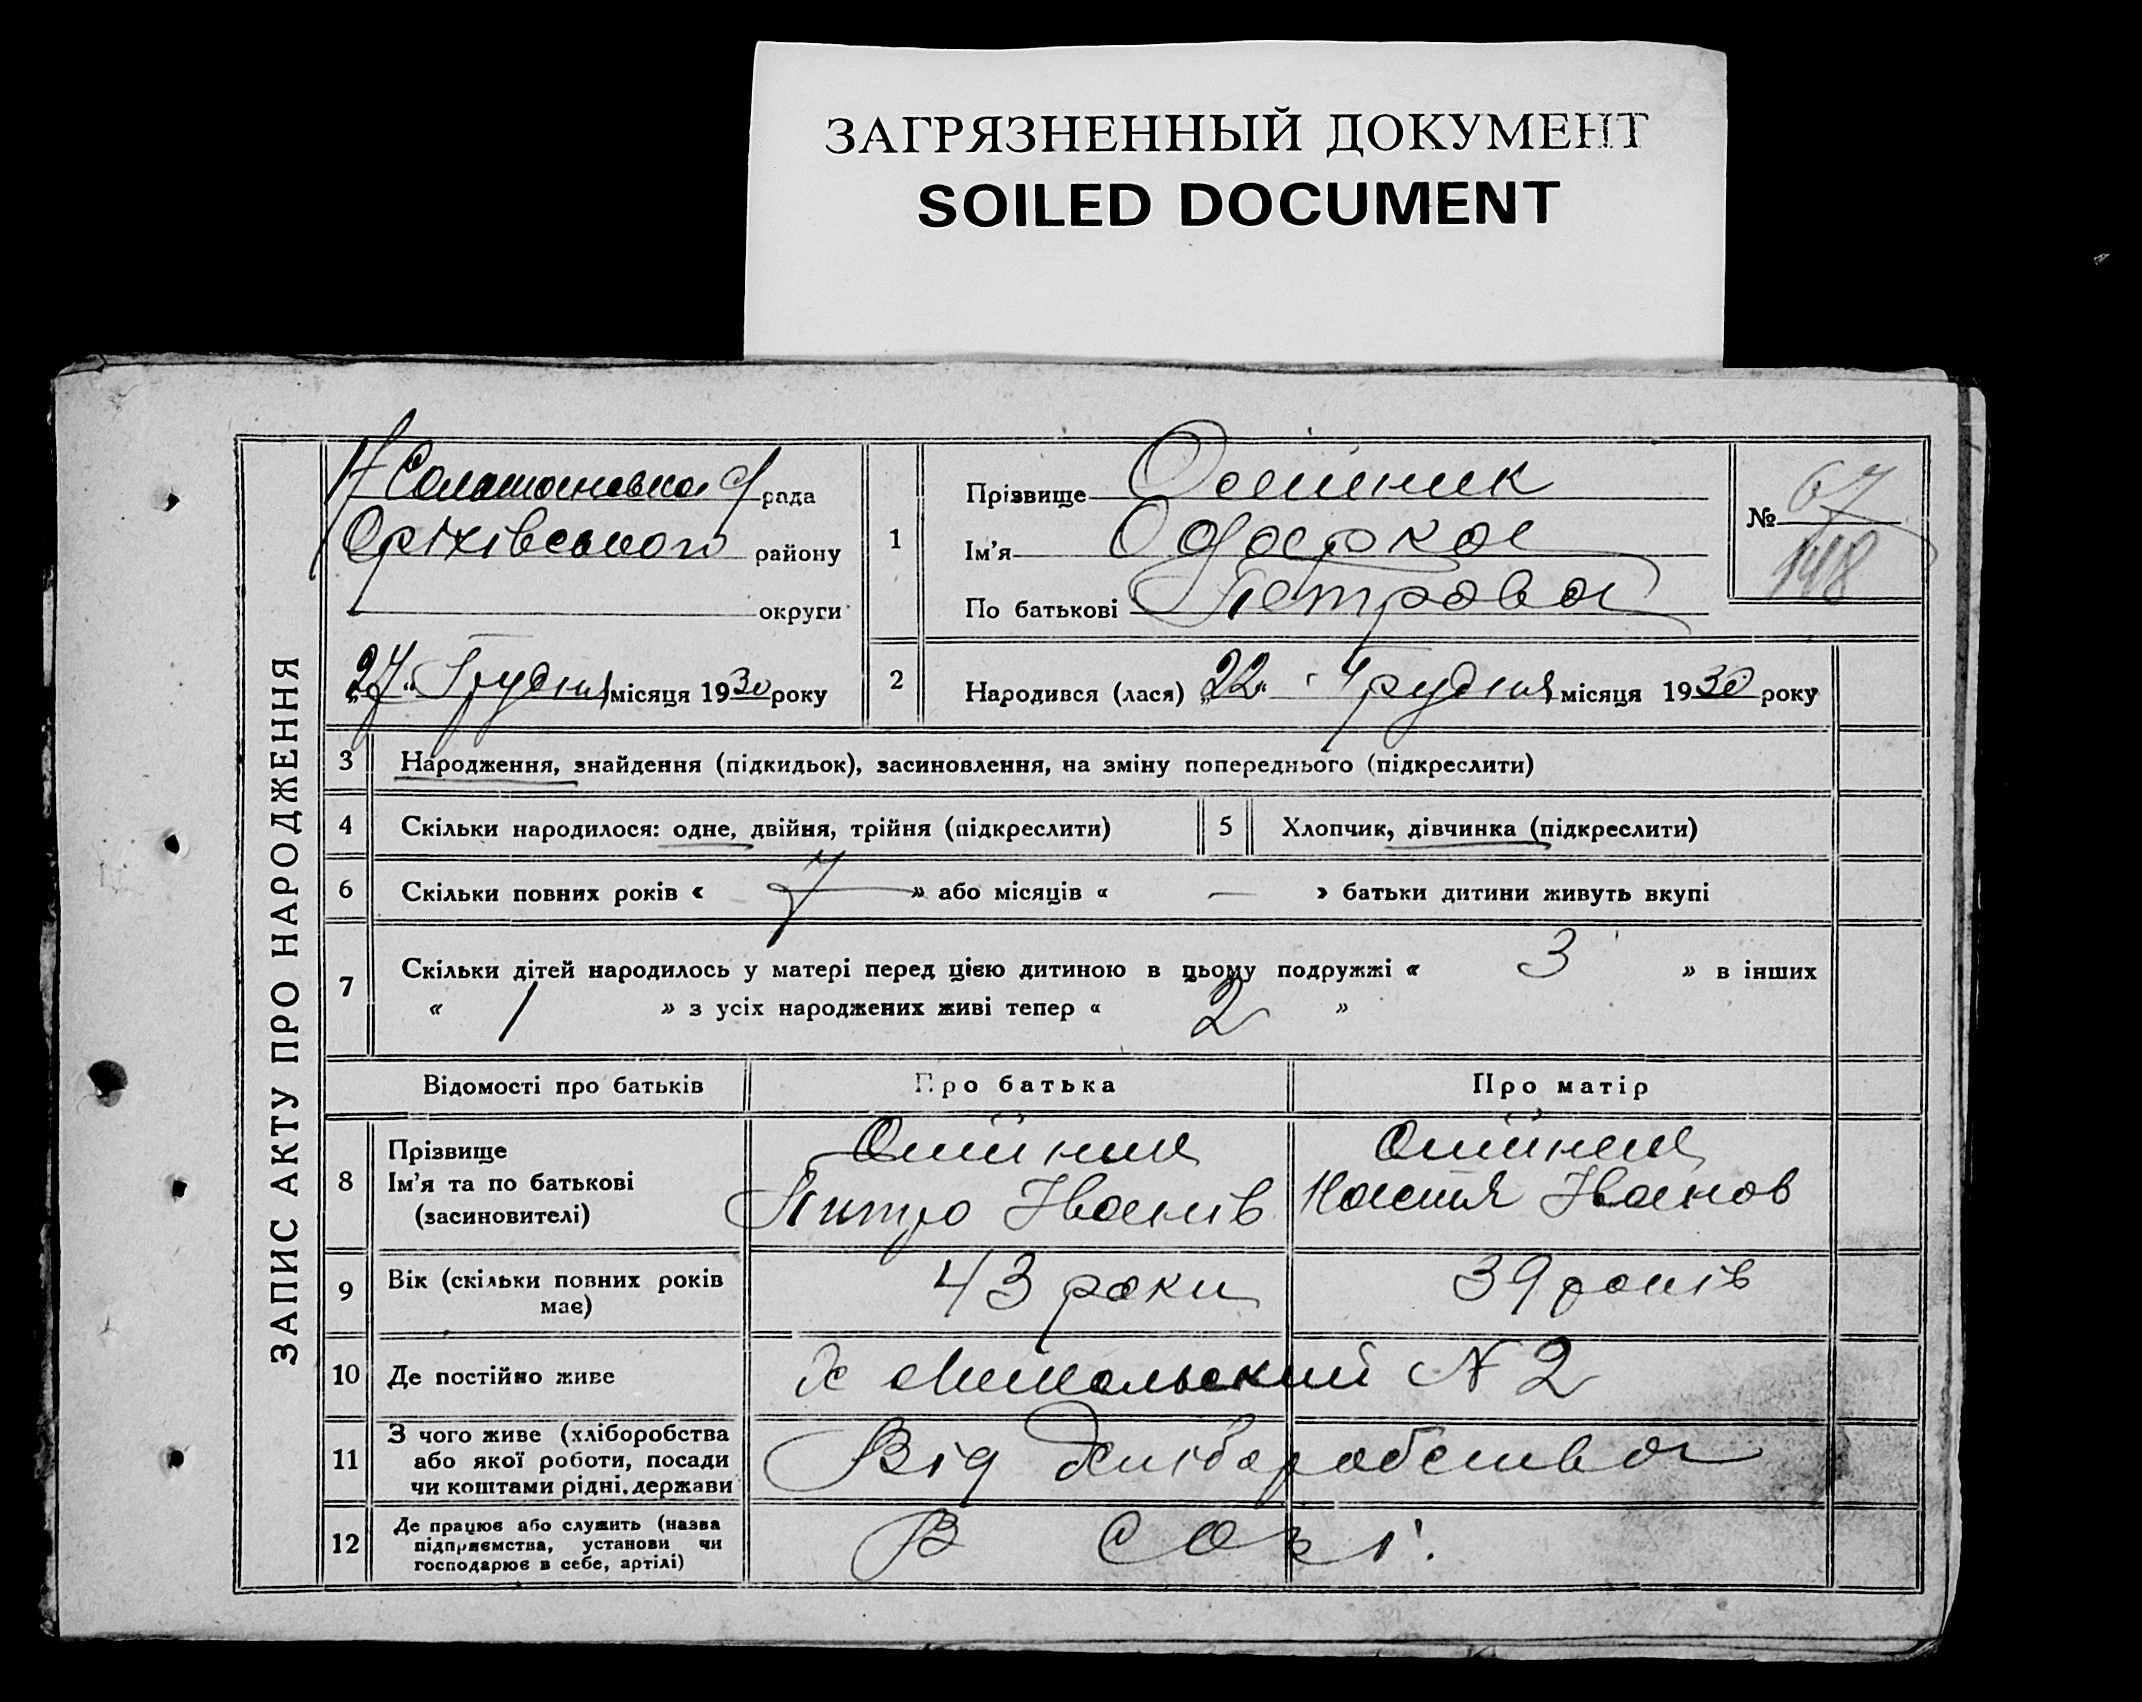 ЗАГРЯЗНЕННЫЙ ДОКУМЕНТ
SOILED DOCUMENT
ЗАПИС АКТУ ПРО НАРОДЖЕННЯ
рада
Оріхівського району
округи
„27“ Грудня місяця 1930 року
1
Прізвище Олійник
Ім'я Одарка
По батькові Петровна
№ 67
148
2
Народився (лася) „22“ Грудня місяця 1930 року
3 Народження, знайдення (підкидьок), засиновлення, на зміну попереднього (підкреслити)
4 Скільки народилося: одне, двійня, трійня (підкреслити)
5 Хлопчик, дівчинка (підкреслити)
6 Скільки повних років « 7 » або місяців « — » батьки дитини живуть вкупі
7 Скільки дітей народилось у матері перед цією дитиною в цьому подружжі « 3 » в інших
« 1 » з усіх народжених живі тепер « 2 »
Відомості про батьків Про батька Про матір
8
Прізвище Олійник Олійник
Ім'я та по батькові Питро Іванів Настя Іванов
(засиновителі)
9 Вік (скільки повних років 43 роки 39 років
має)
10 Де постійно живе х Микольский N 2
11
З чого живе (хліборобства
або якої роботи, посади Від хліборобства
чи коштами рідні, держави
12
Де працює або служить (назва
підприємства, установи чи В созі.
господарює в себе, артілі)